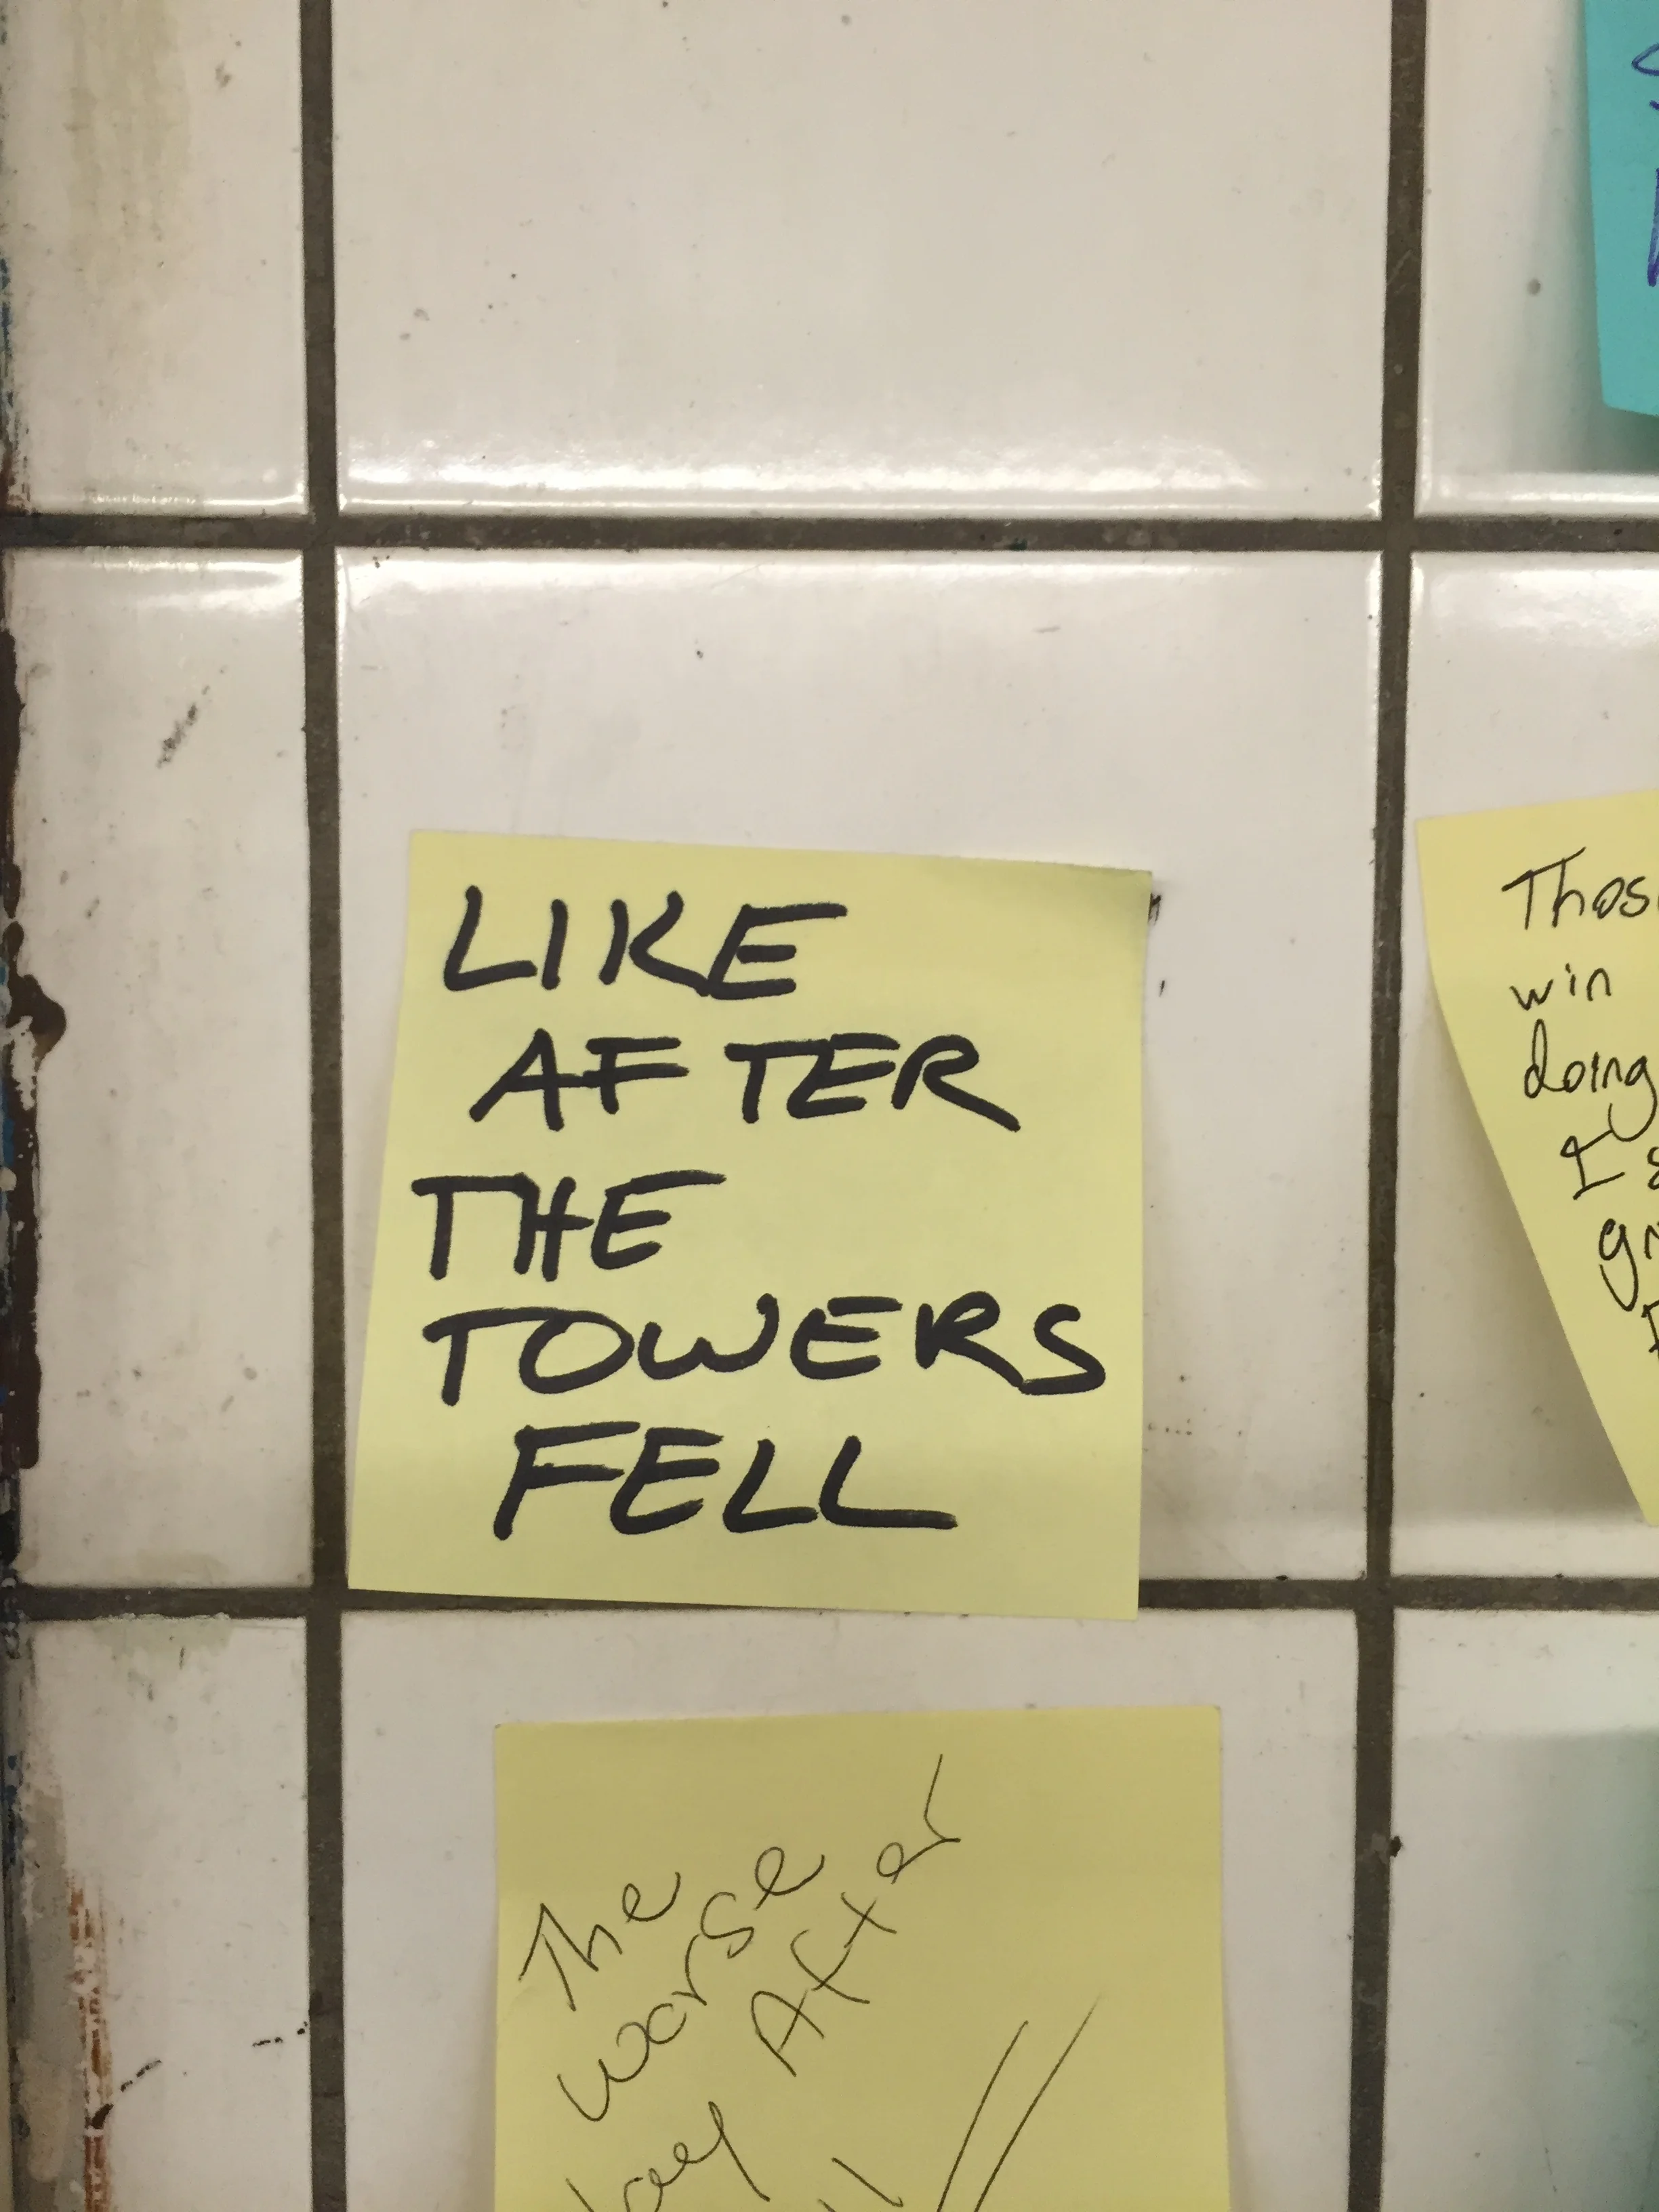 LIKE
AFTER
THE
TOWERS
FELL
Thos
win
doing
I
The
worse
After